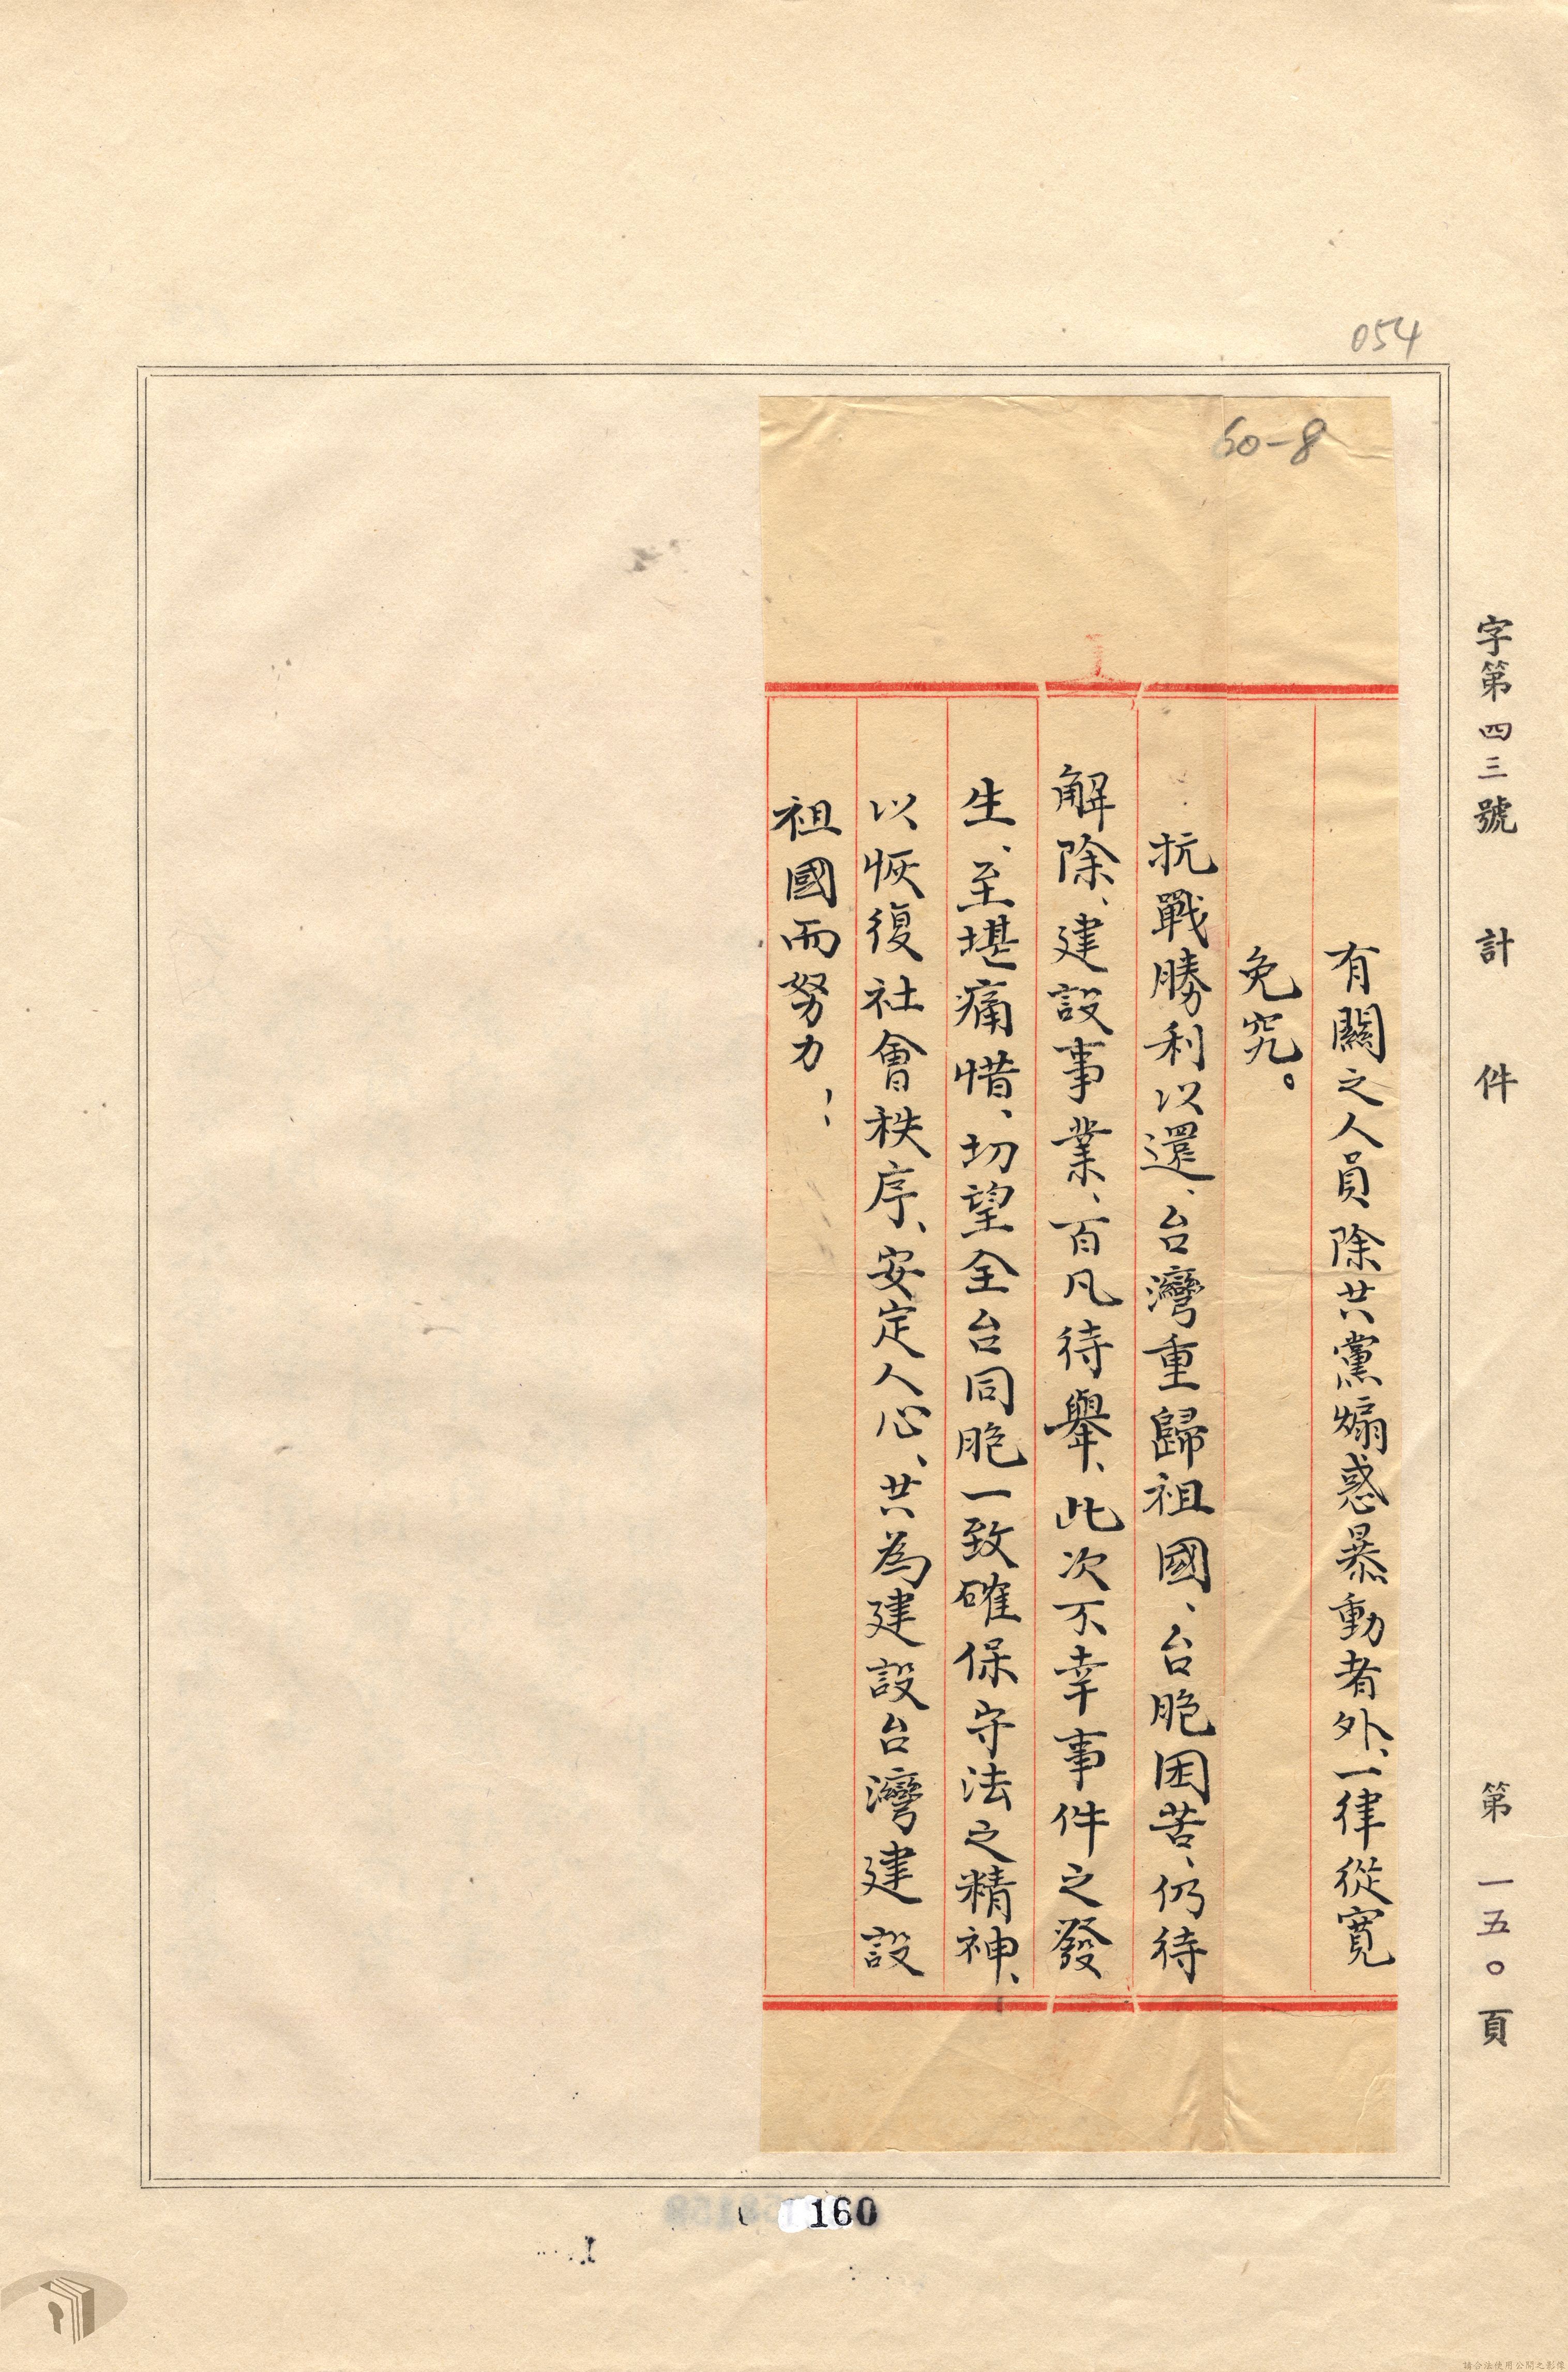 054
60-8
字第四三號 計 件 第一五〇頁
有關之人員除共黨煽惑暴動者外、一律從寬
免究。
抗戰勝利以還、台灣重歸祖國、台胞困苦、仍待
解除、建設事業、百凡待舉、此次不幸事件之發
生、至堪痛惜、切望全台同胞一致確保守法之精神、
以恢復社會秩序、安定人心、共為建設台灣建設
祖國而努力、
160
請合法使用公開之影像